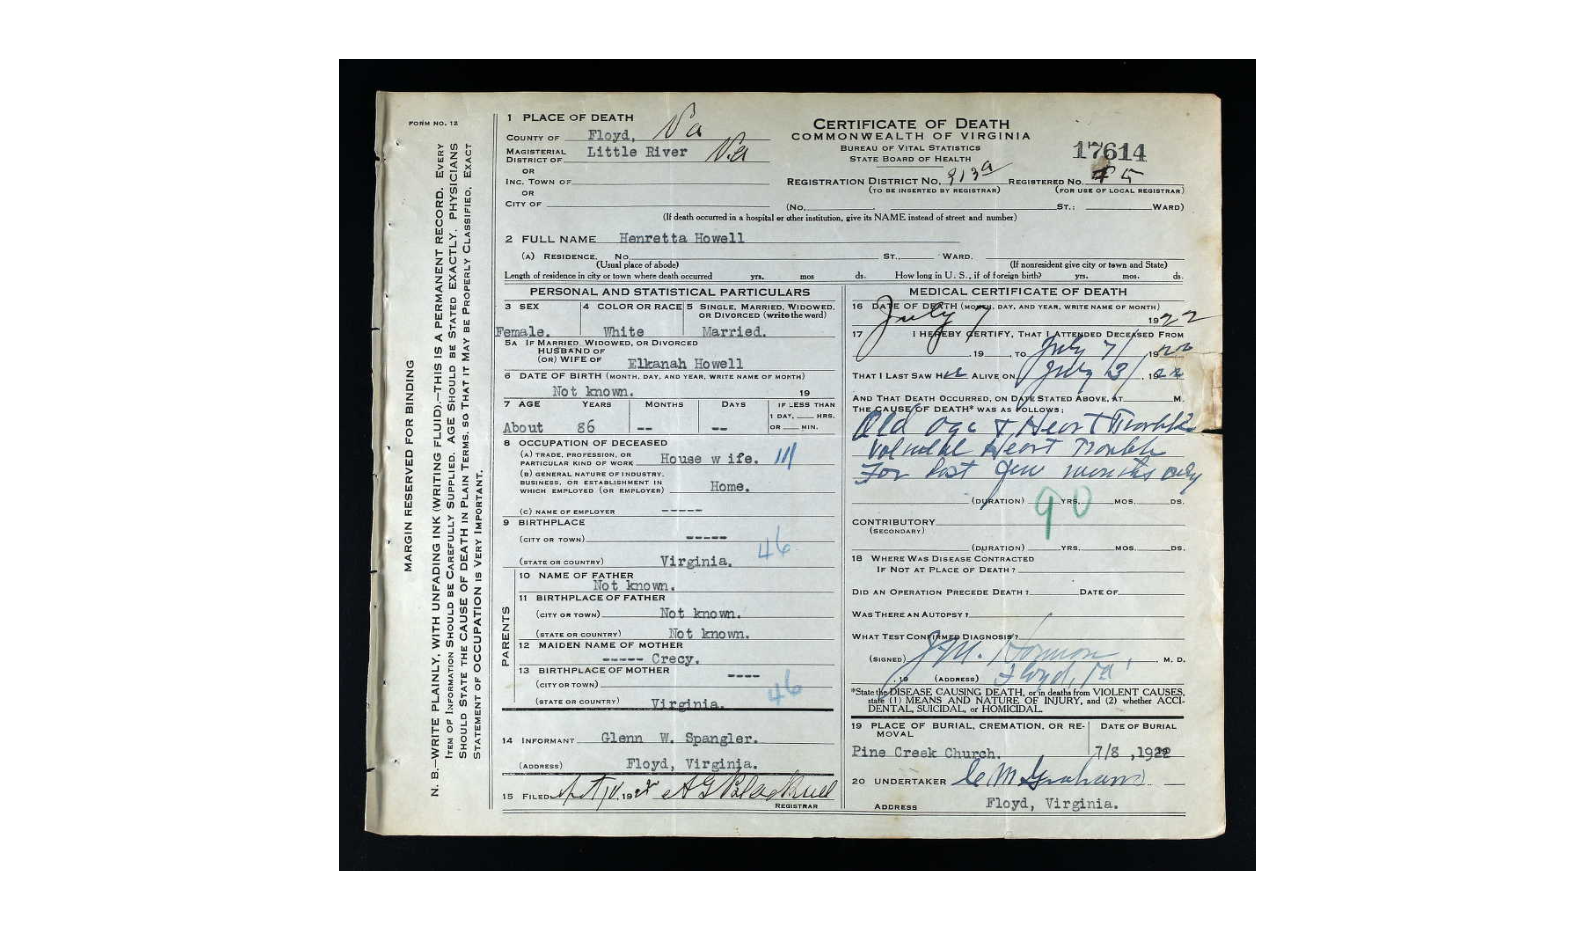 FORM NO. 12
MARGIN RESERVED FOR BINDING
N. B.—WRITE PLAINLY, WITH UNFADING INK (WRITING FLUID).—THIS IS A PERMANENT RECORD. EVERY
ITEM OF INFORMATION SHOULD BE CAREFULLY SUPPLIED. AGE SHOULD BE STATED EXACTLY. PHYSICIANS
SHOULD STATE THE CAUSE OF DEATH IN PLAIN TERMS, SO THAT IT MAY BE PROPERLY CLASSIFIED. EXACT
STATEMENT OF OCCUPATION IS VERY IMPORTANT.
1 PLACE OF DEATH
COUNTY OF Floyd, Va
MAGISTERIAL
DISTRICT OF Little River Va
OR
INC. TOWN OF
OR
CITY OF
CERTIFICATE OF DEATH
COMMONWEALTH OF VIRGINIA
BUREAU OF VITAL STATISTICS
STATE BOARD OF HEALTH
17614
REGISTRATION DISTRICT NO. 313a REGISTERED NO.
(TO BE INSERTED BY REGISTRAR) (FOR USE OF LOCAL REGISTRAR)
(NO. ST.; WARD)
(If death occurred in a hospital or other institution, give its NAME instead of street and number)
2 FULL NAME Henretta Howell
(A) RESIDENCE. No. ST., WARD.
(Usual place of abode) (If nonresident give city or town and State)
Length of residence in city or town where death occurred yrs. mos ds. How long in U. S., if of foreign birth? yrs. mos. ds.
PERSONAL AND STATISTICAL PARTICULARS
3 SEX 4 COLOR OR RACE 5 SINGLE, MARRIED, WIDOWED,
OR DIVORCED (write the word)
Female. White Married.
5A IF MARRIED, WIDOWED, OR DIVORCED
HUSBAND OF
(OR) WIFE OF Elkanah Howell
6 DATE OF BIRTH (MONTH, DAY, AND YEAR, WRITE NAME OF MONTH)
Not known. 19
7 AGE YEARS MONTHS DAYS IF LESS THAN
1 DAY, HRS.
About 86 -- -- OR MIN.
8 OCCUPATION OF DECEASED
(A) TRADE, PROFESSION, OR
PARTICULAR KIND OF WORK House w ife.
(B) GENERAL NATURE OF INDUSTRY,
BUSINESS, OR ESTABLISHMENT IN
WHICH EMPLOYED (OR EMPLOYER) Home.
(C) NAME OF EMPLOYER -----
9 BIRTHPLACE
(CITY OR TOWN) ----- 46
(STATE OR COUNTRY) Virginia.
PARENTS
10 NAME OF FATHER
Not known.
11 BIRTHPLACE OF FATHER
(CITY OR TOWN) Not known.
(STATE OR COUNTRY) Not known.
12 MAIDEN NAME OF MOTHER
----- Crecy.
13 BIRTHPLACE OF MOTHER ----
(CITY OR TOWN) 46
(STATE OR COUNTRY) Virginia.
14 INFORMANT Glenn W. Spangler.
(ADDRESS) Floyd, Virginia.
15 FILED 19
REGISTRAR
MEDICAL CERTIFICATE OF DEATH
16 DATE OF DEATH (MONTH, DAY, AND YEAR, WRITE NAME OF MONTH)
July 7 1922
17 I HEREBY CERTIFY, THAT I ATTENDED DECEASED FROM
, 19 , TO July 7/ , 1922
THAT I LAST SAW Her ALIVE ON July 3/ , 1922
AND THAT DEATH OCCURRED, ON DATE STATED ABOVE, AT M.
THE CAUSE OF DEATH* WAS AS FOLLOWS:
Old age & Heart Trouble
Heart Trouble
For past few months only
(DURATION) YRS. MOS. DS.
90
CONTRIBUTORY
(SECONDARY)
(DURATION) YRS. MOS. DS.
18 WHERE WAS DISEASE CONTRACTED
IF NOT AT PLACE OF DEATH?
DID AN OPERATION PRECEDE DEATH? DATE OF
WAS THERE AN AUTOPSY?
WHAT TEST CONFIRMED DIAGNOSIS?
(SIGNED) J.M. M. D.
, 19 (ADDRESS) Floyd, Va
*State the DISEASE CAUSING DEATH, or in deaths from VIOLENT CAUSES,
state (1) MEANS AND NATURE OF INJURY, and (2) whether ACCI-
DENTAL, SUICIDAL, or HOMICIDAL.
19 PLACE OF BURIAL, CREMATION, OR RE-
MOVAL
DATE OF BURIAL
Pine Creek Church. 7/8 , 1922
20 UNDERTAKER C M Graham
ADDRESS Floyd, Virginia.